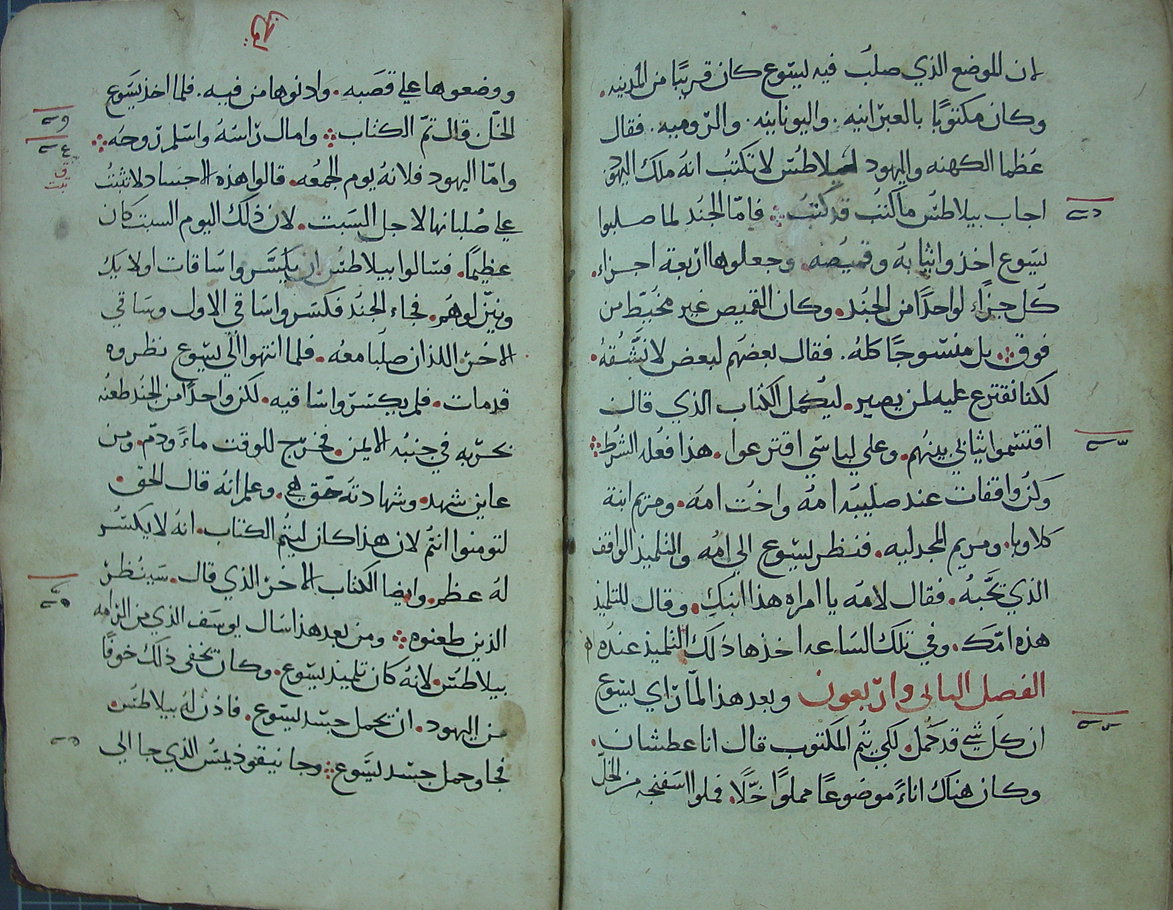 ان الموضع الذي صلب فيه ليسوع كان قريبًا من المدينه.
وكان مكتوبًا بالعبرانيه. واليونانيه. والروميه. فقال
عظما الكهنه واليهود لبيلاطس لا تكتب انه ملك اليهود
اجاب بيلاطس ما كتبت قد كتبت فامّا الجند لما صلبوا
يسوع اخذوا ثيابه وقميصه وجعلوها اربعة اجزاء.
كل جزاء لواحدًا من الجند. وكان القميص غير مخيّط من
فوق بل منسوجًا كله. فقال بعضهم لبعض لا نشقه
لكنا نقترع عليه لمن يصير. ليكمل الكتاب الذي قال
اقتسموا ثيابي بينهم. وعلي لباسي اقترعوا. هذا فعله الشرط
وكن واقفات عند صليبه امه واخت امه. ومريم ابنة
كلاوبا. ومريم المجدليه. فنظر يسوع الي امه والتلميذ الواقف
الذي يحبه. فقال لامه يا امراه هذا ابنك. وقال للتلميذ
هذه امك. وفي تلك الساعه اخذها ذلك التلميذ عنده
الفصل الثاني واربعون وبعد هذا لما راي يسوع
ان كل شي قد كمل. لكي يتم المكتوب قال انا عطشان.
وكان هناك اناءً موضوعًا مملوًا خلًا. فملوا اسفنجه من الخل
ووضعوها علي قصبه. وادنوها من فيه. فلما اخذ يسوع
الخل قال تم الكتاب وامال راسه واسلم روحه
وامّا اليهود فلانه يوم الجمعه. قالوا هذه الاجساد لا تثبت
علي صلبانها لاجل السبت. لان ذلك اليوم السبت كان
عظيمًا. فسالوا بيلاطس ان يكسروا ساقات اولايك
وينزلوهم. فجاء الجند فكسروا ساقي الاول وساقي
الاخر اللذان صلبا معه. فلما انتهوا الي يسوع نظروه
قد مات. فلم يكسروا ساقيه. لكن واحدًا من الجند طعنه
بحربه في جنبه الايمن. فخرج للوقت ماءً ودم. ومن
عاين شهد. وشهادته حق هي. وعلم انه قال الحق.
لتومنوا انتم لان هذا كان ليتم الكتاب. انه لا يكسر
له عظم. وايضا الكتاب الاخر الذي قال. سينظرن
الذين طعنوه ومن بعد هذا سال يوسف الذي من الرامه
بيلاطس. لانه كان تلميذ يسوع. وكان يخفي ذلك خوفًا
من اليهود. ان يحمل جسد ليسوع. فاذن له بيلاطس.
فجا وحمل جسد ليسوع وجا نيقوذيمس الذي جا الي